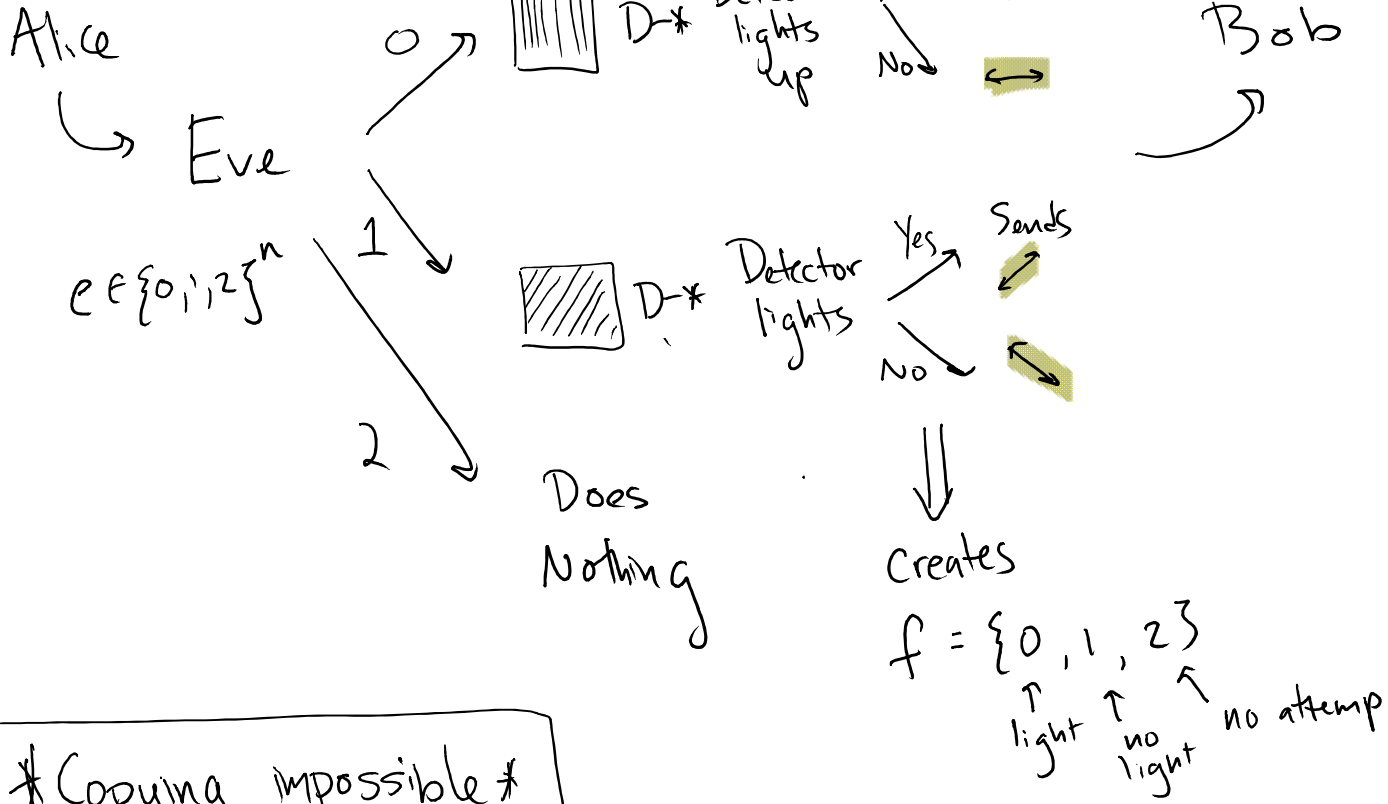 Alice
0
D-*
lights
up
No
Bob
Eve
1
e ∈ {0,1,2}^n
D-*
Detector
lights
Yes
Sends
No
2
Does
Nothing
Creates
f = {0, 1, 2}
light
no
light
no attemp
*Copying impossible*